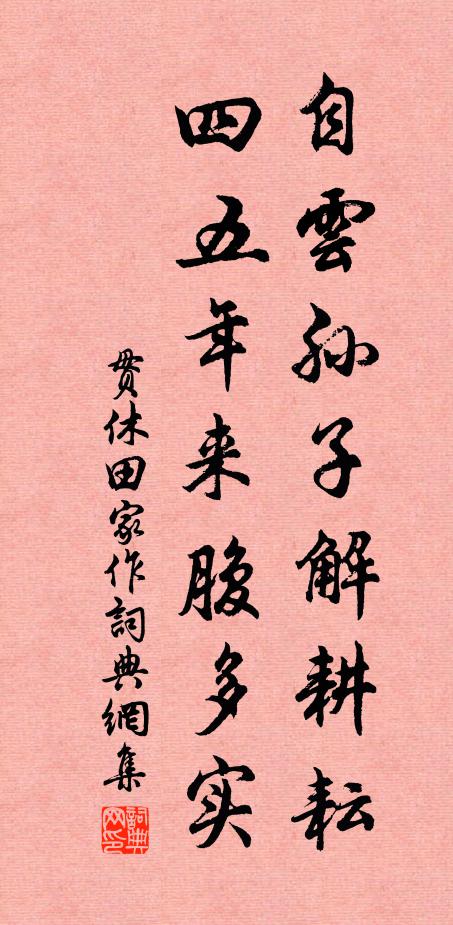 自雲孙子解耕耘
四五年来腹多实
贯休田家作詞典網集
詞典网印